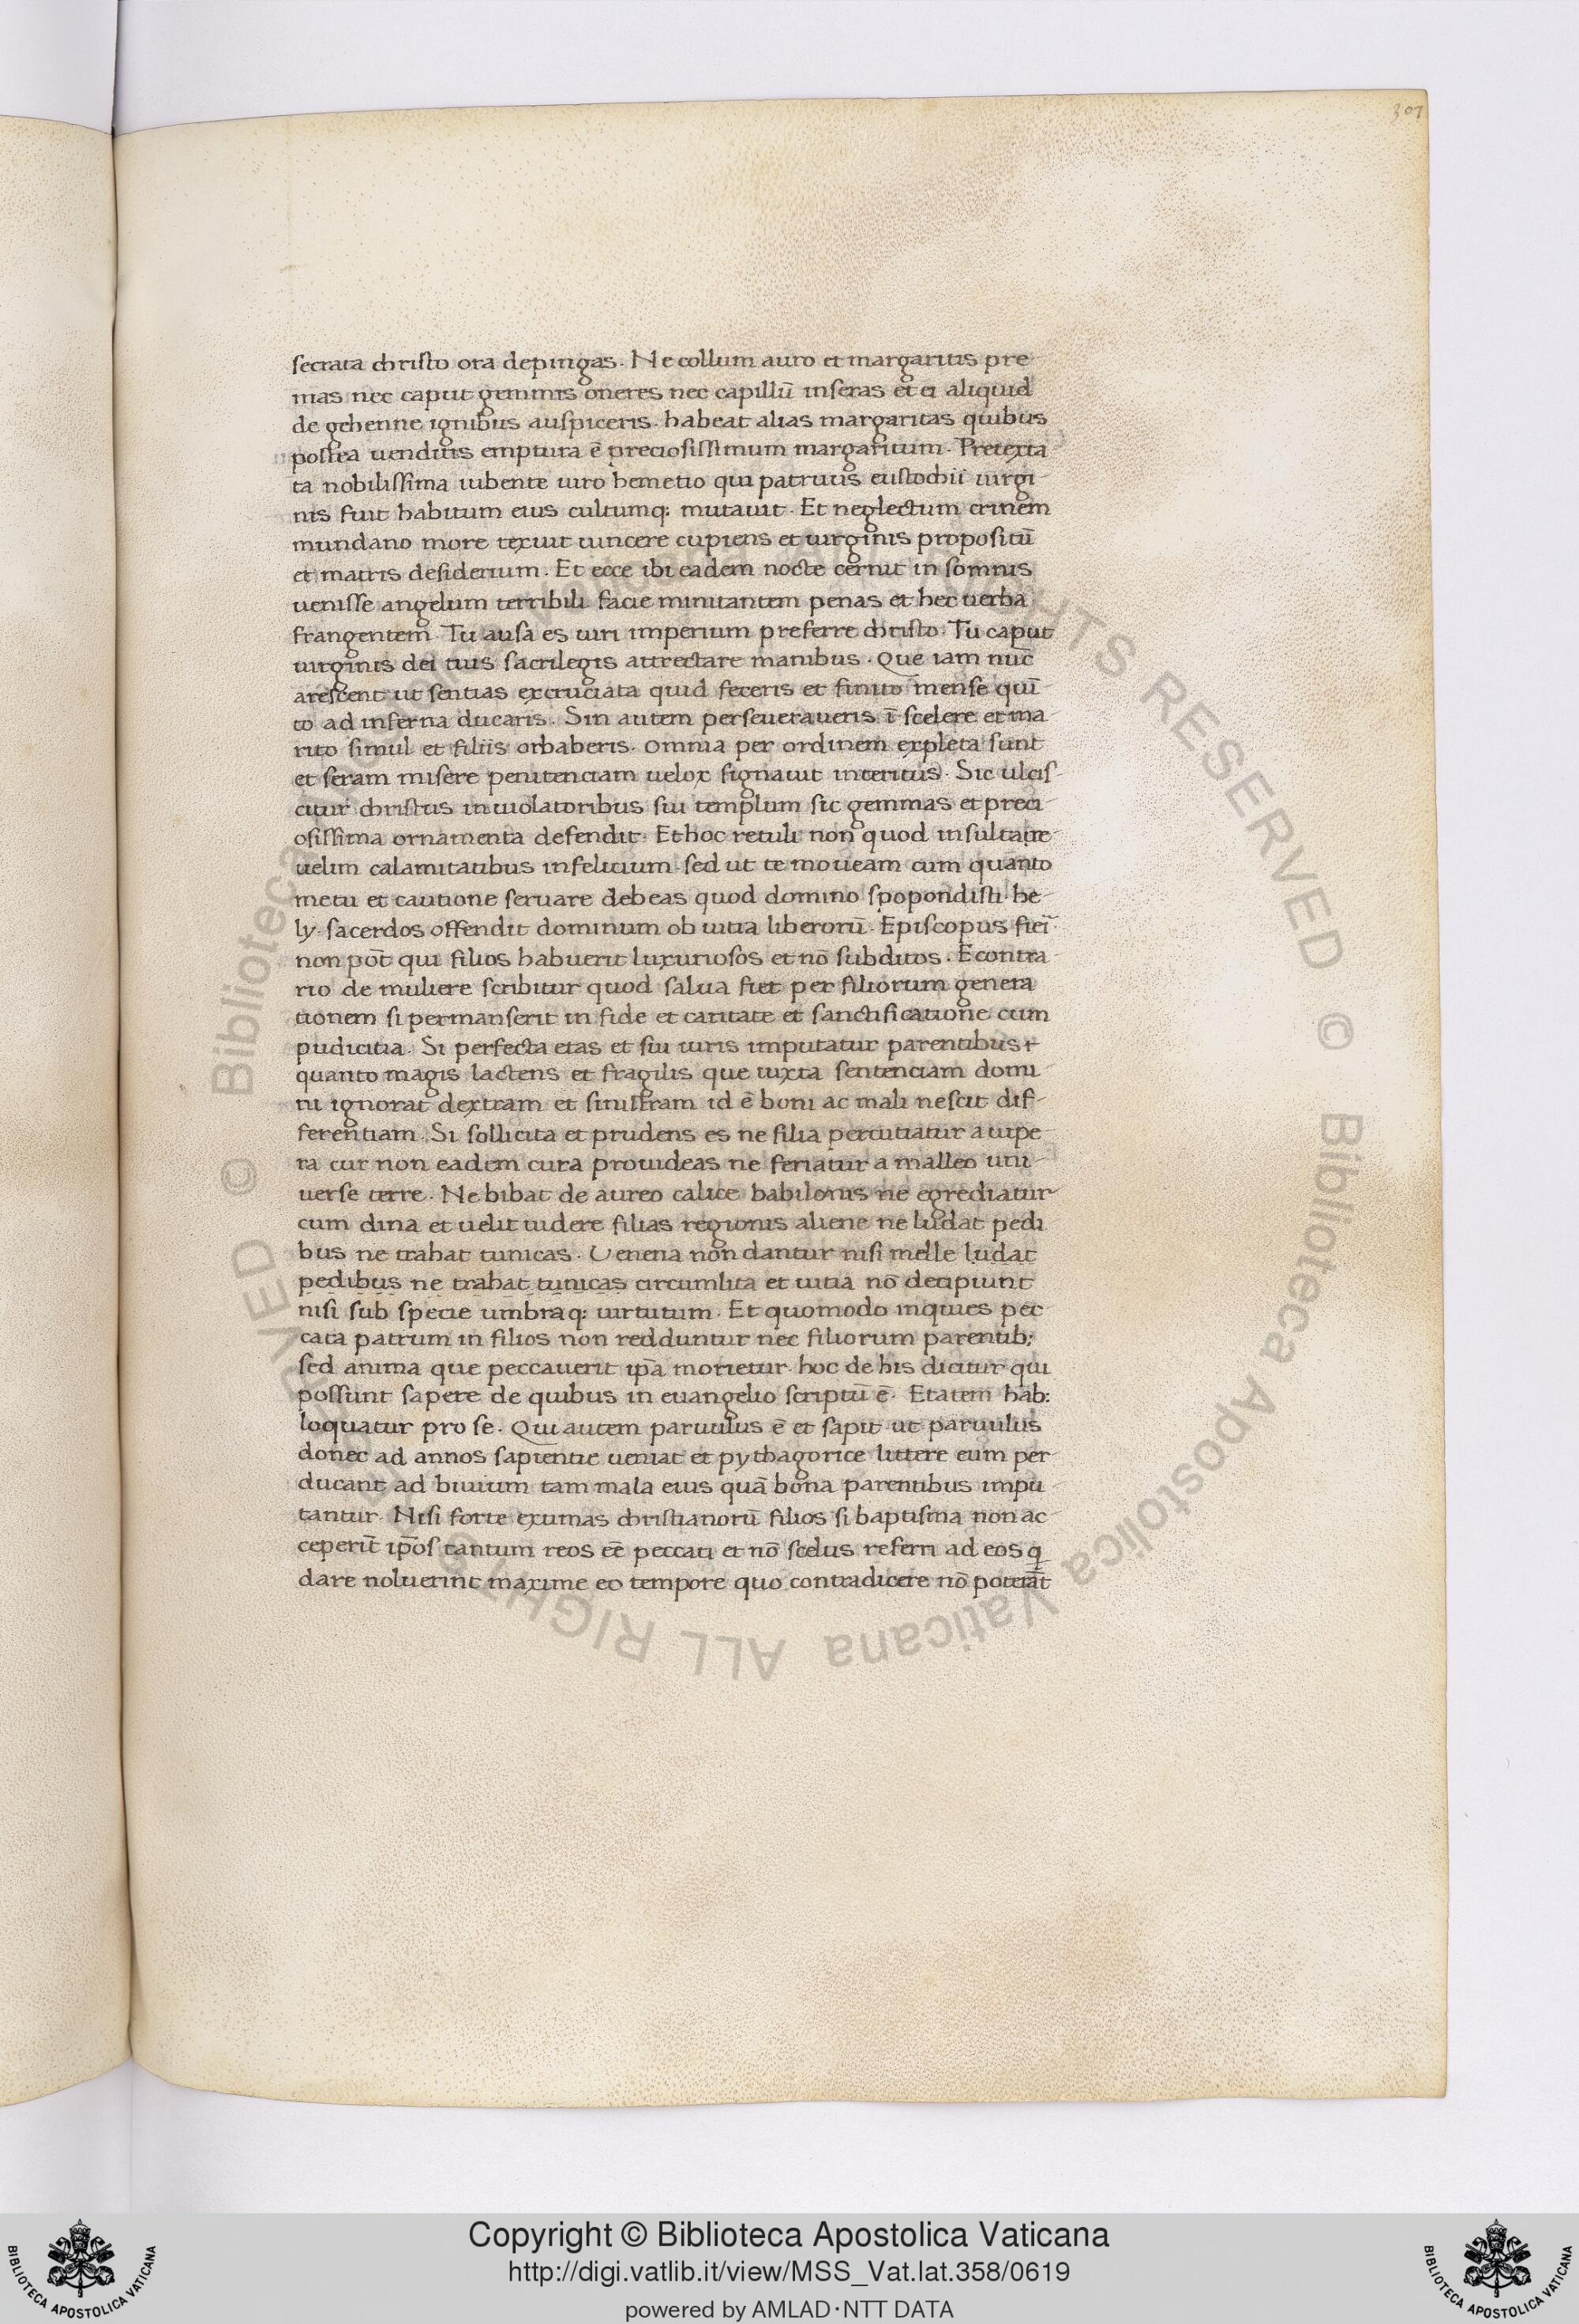 307
secrata christo ora depingas. Ne collum auro et margaritis pre
mas nec caput gemmis oneres nec capillū inseras et ei aliquid
de gehenne ignibus auspiceris. habeat alias margaritas quibus
postea uenditis emptura ē preciosissimum margaritum. Pretexta
ta nobilissima iubente uiro hemetio qui patruus eustochii uirgi-
nis fuit habitum eius cultumq; mutauit. Et neglectum crinem
mundano more texuit uincere cupiens et uirginis propositū
et matris desiderium. Et ecce ibi eadem nocte cernit in somnis
uenisse angelum terribili facie minitantem penas et hec uerba
frangentem. Tu ausa es uiri imperium preferre christo. Tu caput
uirginis dei tuis sacrilegis attrectare manibus. Que iam nūc
arescent ut sentias excruciata quid feceris et finito mense quī-
to ad inferna ducaris. Sin autem perseueraueris ī scelere et ma
rito simul et filiis orbaberis. omnia per ordinem expleta sunt
et seram misere penitenciam uelox signauit interitus. Sic ulcis-
citur christus in uiolatoribus sui templum sic gemmas et preci-
osissima ornamenta defendit. Et hoc retuli non quod insultare
uelim calamitatibus infelicium sed ut te moueam cum quanto
metu et cautione seruare debeas quod domino spopondisti. he-
ly. sacerdos offendit dominum ob uitia liberorū. Episcopus fieī
non pōt qui filios habuerit luxuriosos et nō subditos. Econtra-
rio de muliere scribitur quod salua fiet per filiorum genera
tionem si permanserit in fide et caritate et sanctificatione cum
pudicitia. Si perfecta etas et sui iuris imputatur parentibus
quanto magis lactens et fragilis que iuxta sentenciam domi-
ni ignorat dextram et sinistram id ē boni ac mali nescit dif-
ferentiam. Si sollicita et prudens es ne filia percutiatur a uipe-
ra cur non eadem cura prouideas ne feriatur a malleo uni-
uerse terre. Ne bibat de aureo calice babilonis ne egrediatur
cum dina et uelit uidere filias regionis aliene ne ludat pedi
bus ne trahat tunicas. Venena non dantur nisi melle ludat
pedibus ne trahat tunicas circumlita et uitia nō decipiunt
nisi sub specie umbraq; uirtutum. Et quomodo inquies pec
cata patrum in filios non redduntur nec filiorum parentib;
sed anima que peccauerit ip̄a morietur. hoc de his dicitur qui
possunt sapere de quibus in euangelio scriptū ē. Etatem hab:
loquatur pro se. Qui autem paruulus ē et sapit ut paruulus
donec ad annos sapientie ueniat et pythagorice littere eum per-
ducant ad biuium tam mala eius quā bona parentibus impu-
tantur. Nisi forte exumas christianorū filios si baptisma non ac-
ceperīt ip̄os tantum reos eē peccati et nō scelus referri ad eos q
dare noluerint maxime eo tempore quo contradicere nō poterāt
Copyright © Biblioteca Apostolica Vaticana
http://digi.vatlib.it/view/MSS_Vat.lat.358/0619
powered by AMLAD·NTT DATA
BIBLIOTECA APOSTOLICA VATICANA
BIBLIOTECA APOSTOLICA VATICANA
© Biblioteca Apostolica Vaticana ALL RIGHTS RESERVED © Biblioteca Apostolica Vaticana ALL RIGHTS RESERVED